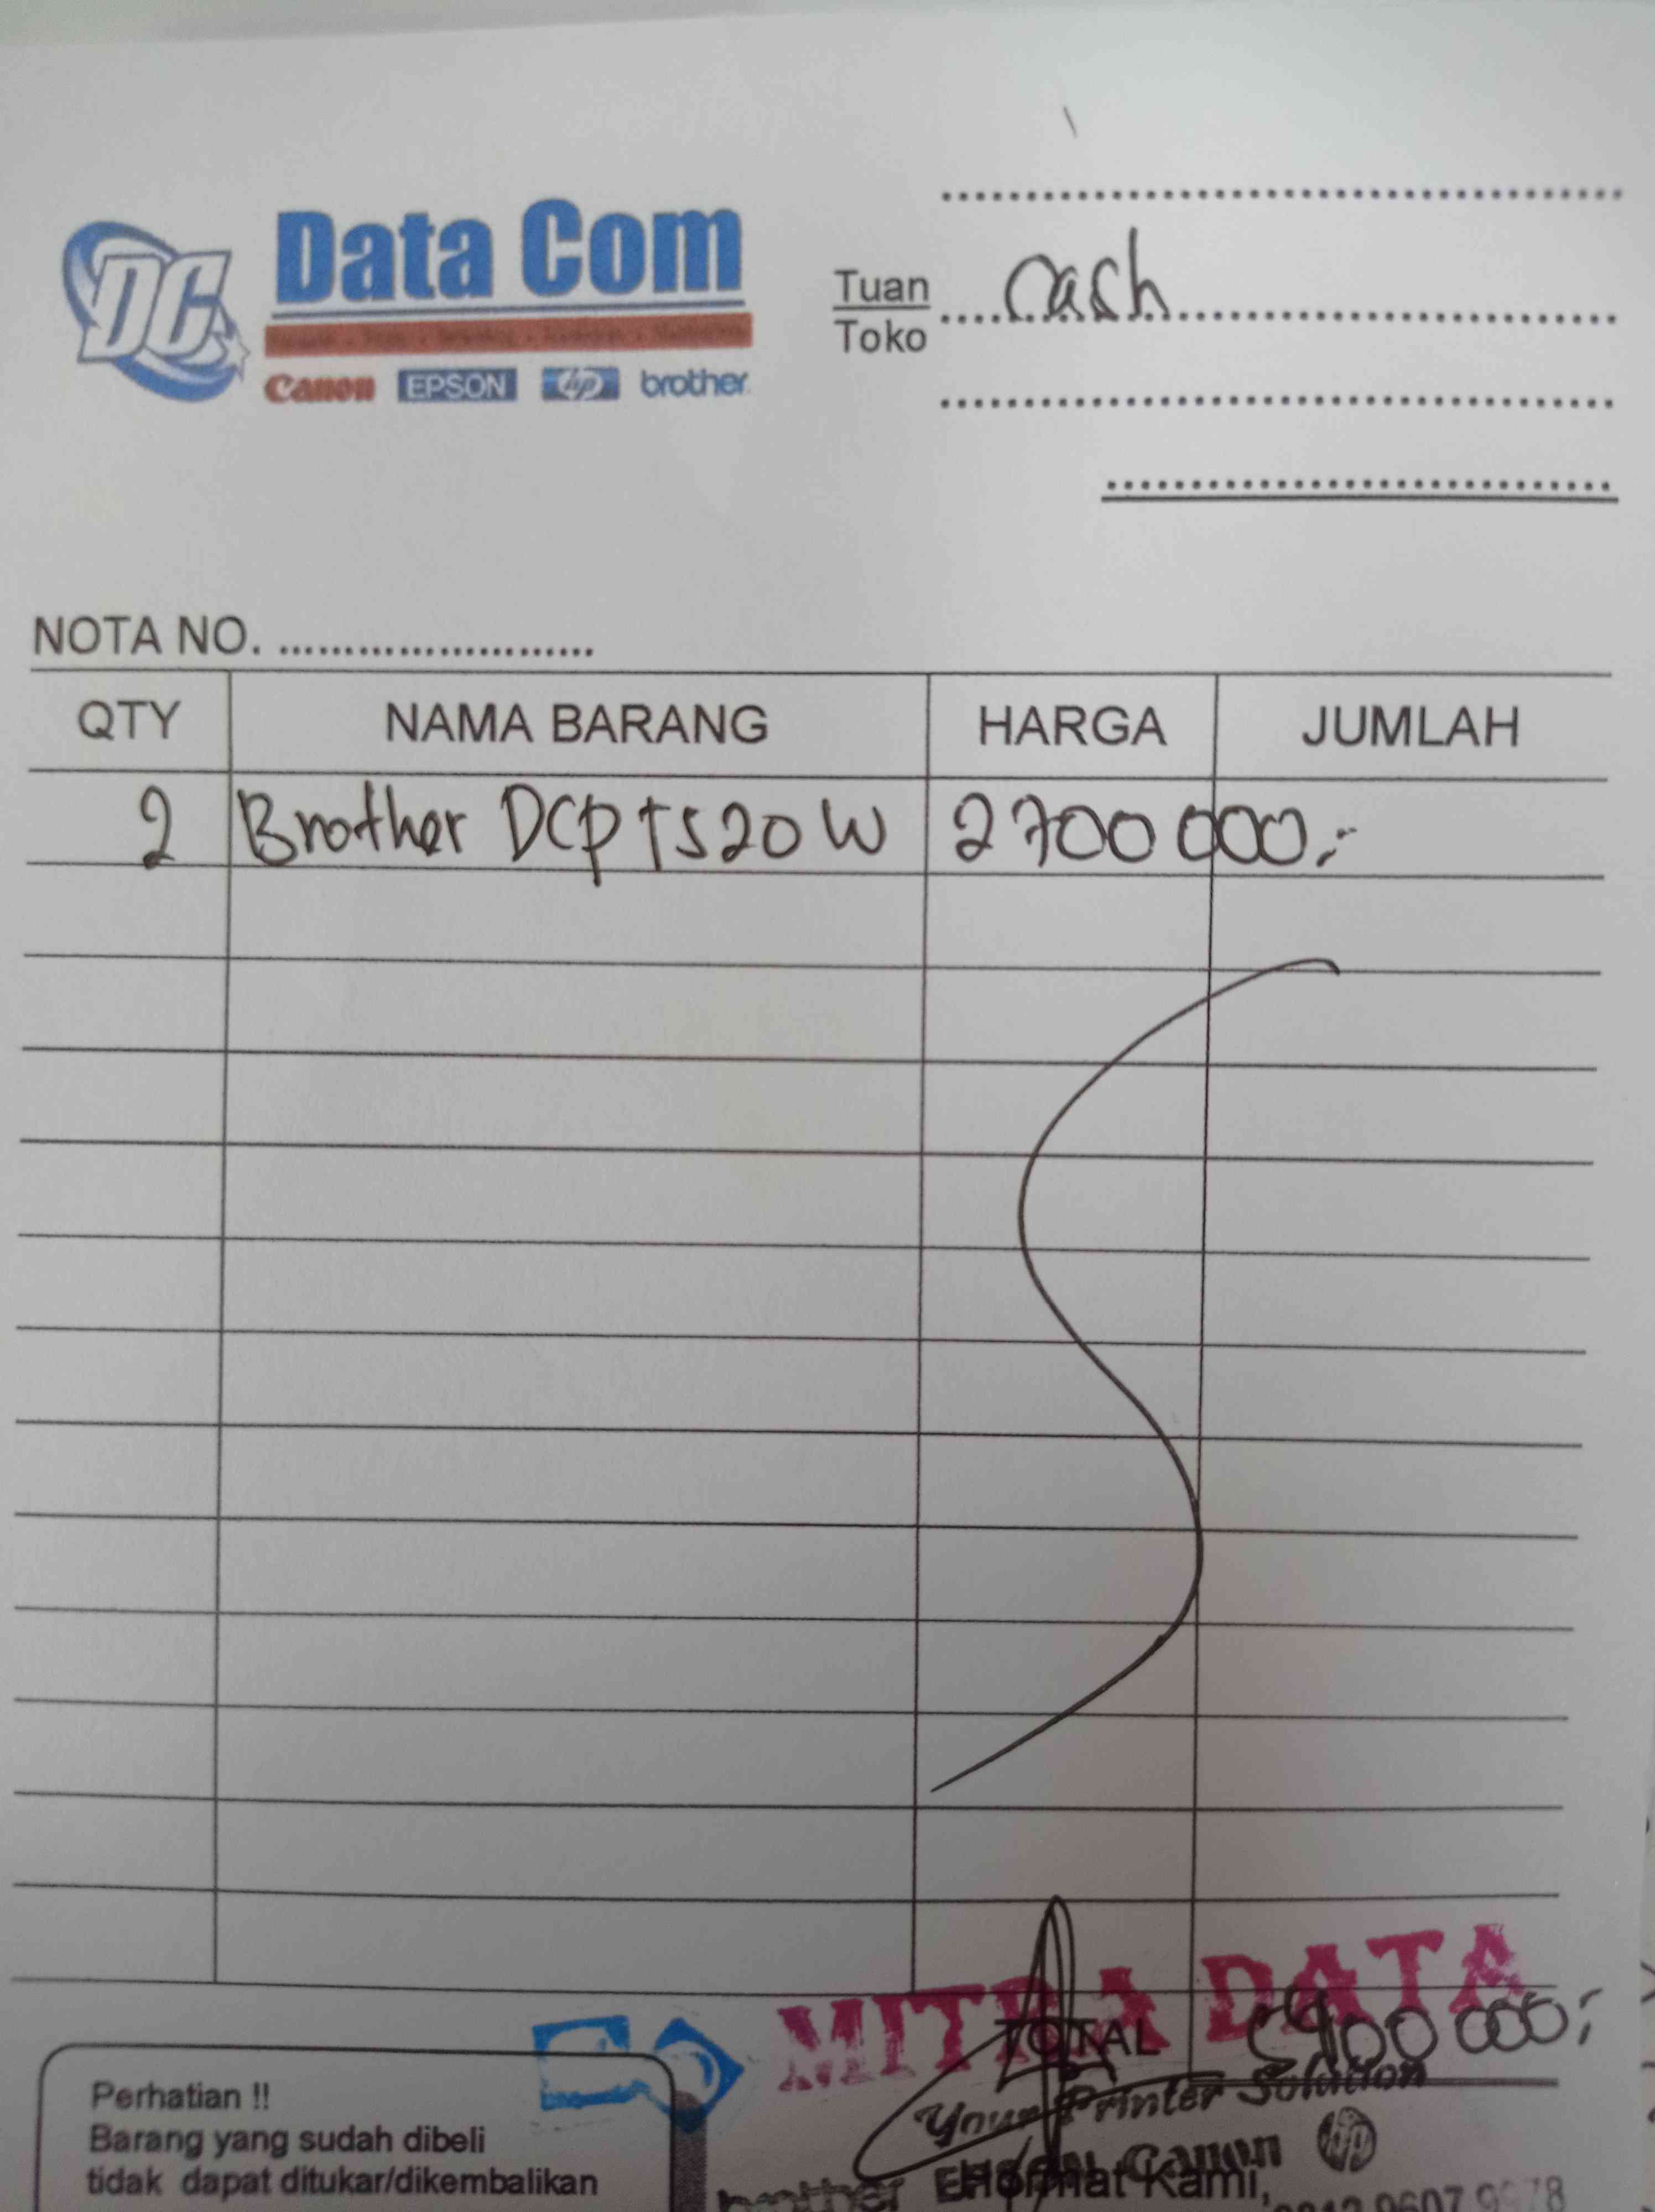 DC Data Com
Canon EPSON hp brother
Tuan Cash
Toko
NOTA NO. ........................
QTY NAMA BARANG HARGA JUMLAH
2 Brother DCP T520W 2700 000,-
MITRA DATA
TOTAL 5400 000,-
Your Printer Solution
Perhatian !!
Barang yang sudah dibeli
tidak dapat ditukar/dikembalikan
brother EPSON Canon hp
Hormat Kami,